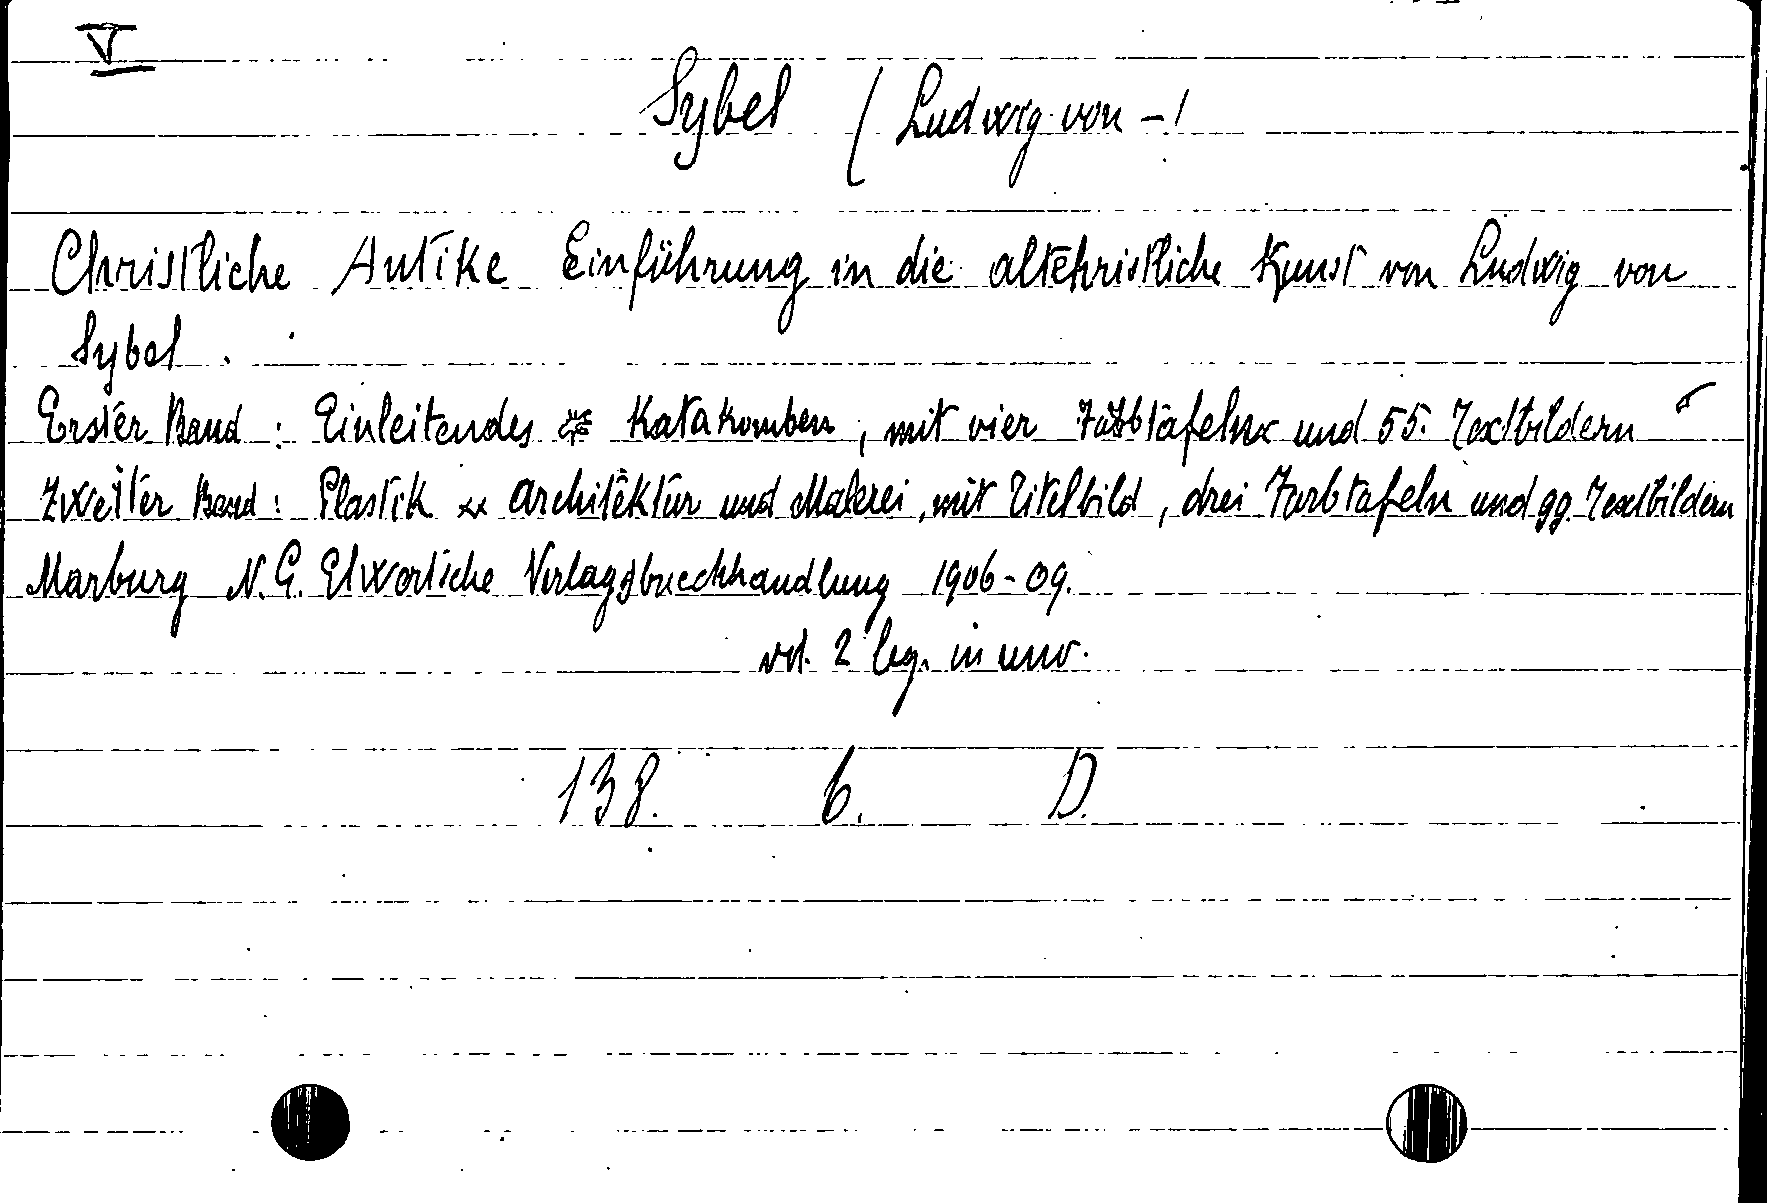 V
Sybel (Ludwig von -)
Christliche Antike Einführung in die altchristliche Kunst von Ludwig von
Sybel.
Erster Band: Einleitendes Katakomben, mit vier Farbtafeln und 55. Textbildern
Zweiter Band: Plastik Architektur und Malerei, mit Titelbild, drei Farbtafeln und 99. Textbildern
Marburg N. G. Elwertiche Verlagsbuchhandlung 1906-09.
vol. 2 leg. in uno.
138. 6. D.